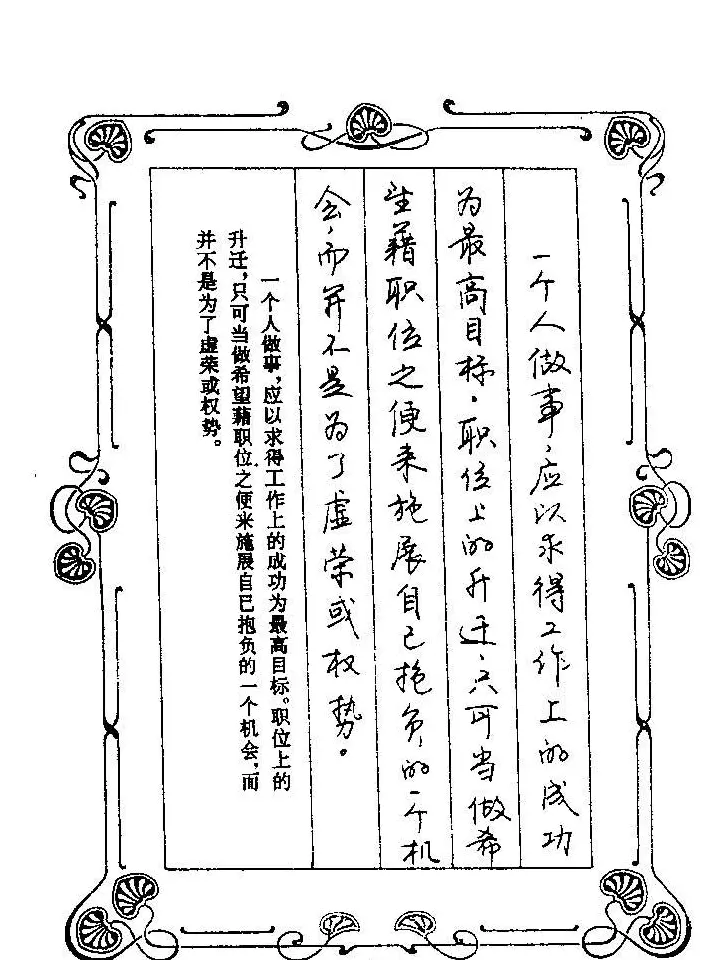 一个人做事，应以求得工作上的成功
为最高目标。职位上的升迁，只可当做希
望藉职位之便来施展自己抱负的一个机
会，而并不是为了虚荣或权势。
一个人做事，应以求得工作上的成功为最高目标。职位上的
升迁，只可当做希望藉职位之便来施展自己抱负的一个机会，而
并不是为了虚荣或权势。